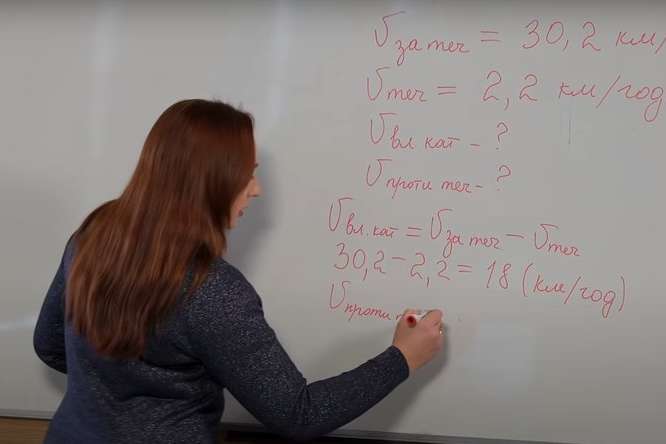 Vза теч = 30,2 км/
Vтеч = 2,2 км/год
Vвл. кат - ?
Vпроти теч - ?
Vвл. кат = Vза теч - Vтеч
30,2 - 2,2 = 18 (км/год)
Vпроти т